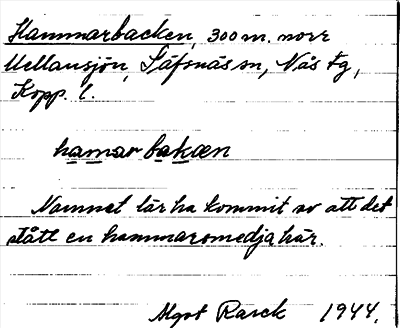 Hammarbacken, 300 m. norr
Mellansjön, Säfsnäs sn, Näs tg,
Kopp. l.
hamarbakæn
Namnet lär ha kommit av att det
stått en hammarsmedja här.
Algot Rarck 1944.